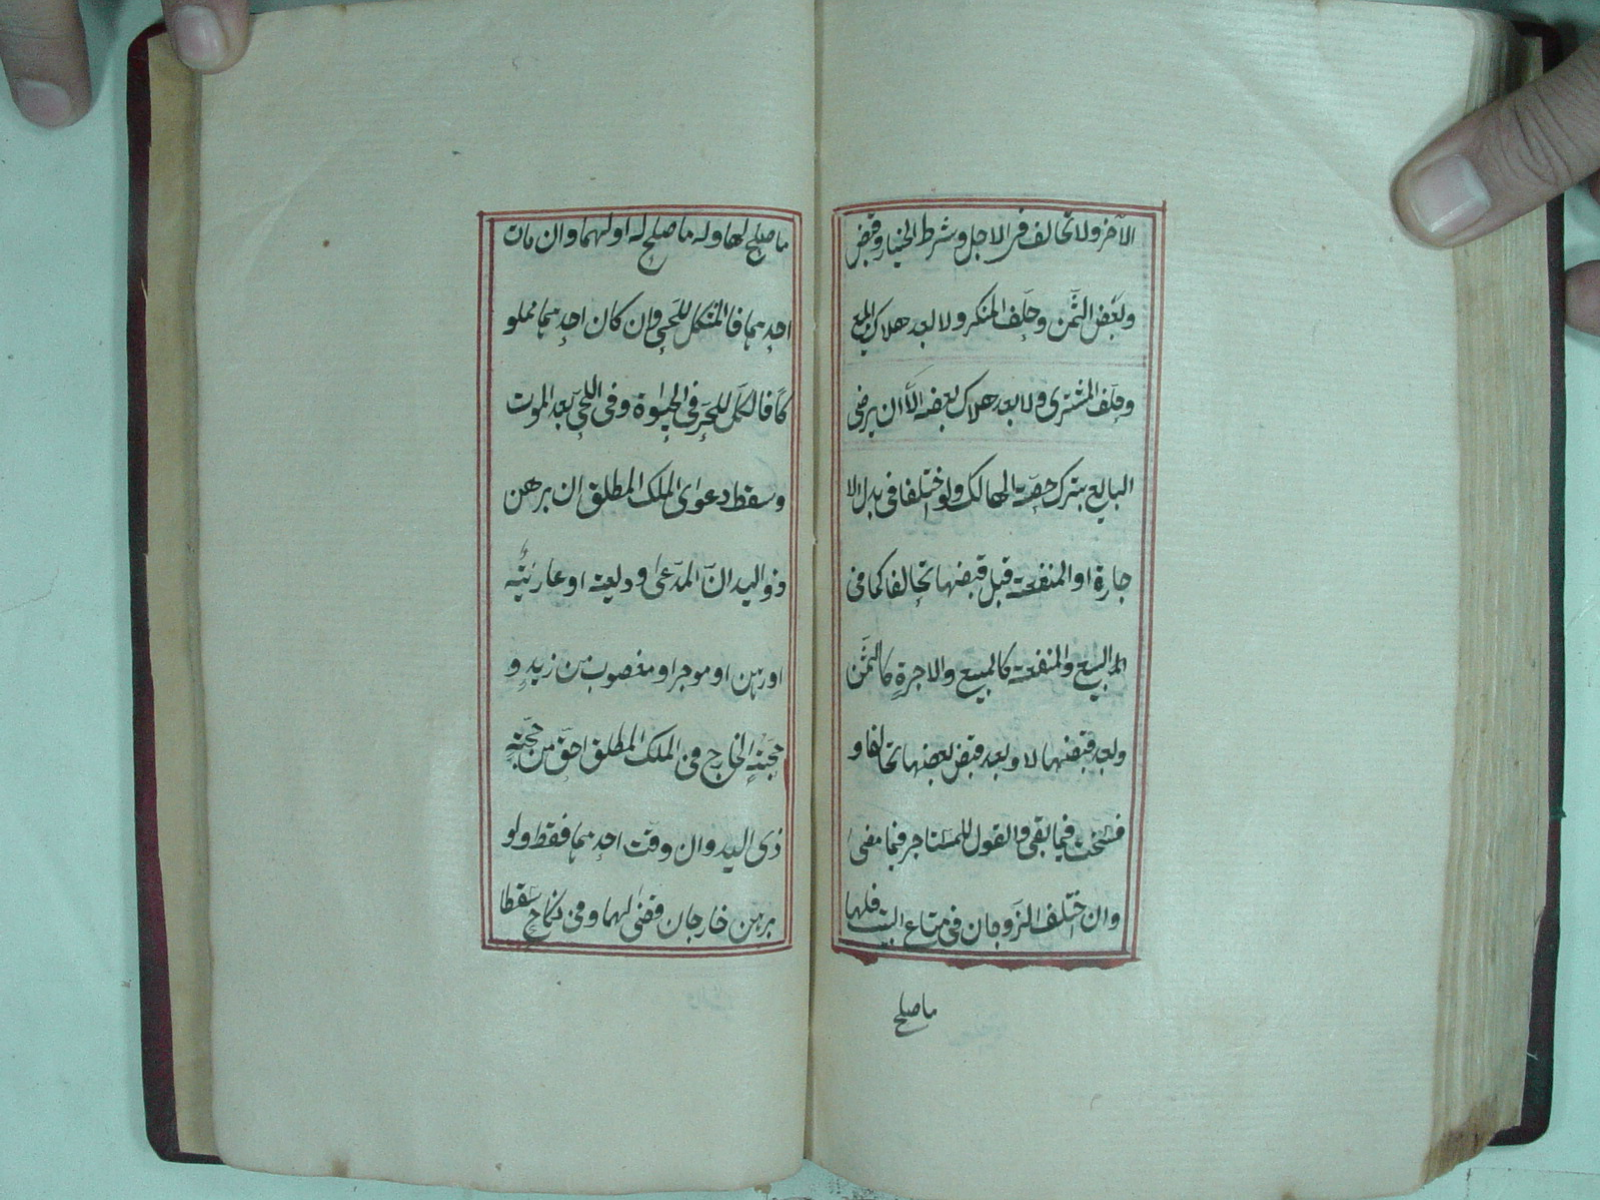 الآخر ولا تحالف فى الاجل وشرط الخيار وقبض
وبعض الثمن وحلف المنكر ولا بعد هلاك المبيع
وحلف المشترى ولا بعد هلاك بعضه الا ان يرضى
البايع بترك حصة الهالك ولو اختلفا فى بدل الا
جارة او المنفعة قبل قبضها تحالفا كما فى
البيع والمنفعة كالمبيع والاجرة كالثمن
وبعد قبضهما لا وبعد قبض بعضها تحالفا و
فسخت فيما بقى والقول للمستاجر فيما مضى
وان اختلف الزوجان فى متاع البيت فلها
ما صلح
ما صلح لها وله ما صلح له او لهما وان مات
احدهما فالمشكل للحى وان كان احدهما مملو
كا فالكل للحر فى الحيوة وفى الحى بعد الموت
وسقط دعوى الملك المطلق ان برهن
ذو اليد ان المدعى وديعة او عارية
او رهن او موجر او مغصوب من زيد و
حجة الخارج فى الملك المطلق احق من حجة
ذى اليد وان وقت احدهما فقط ولو
برهن خارجان قضى لهما وفى نكاح سقطا